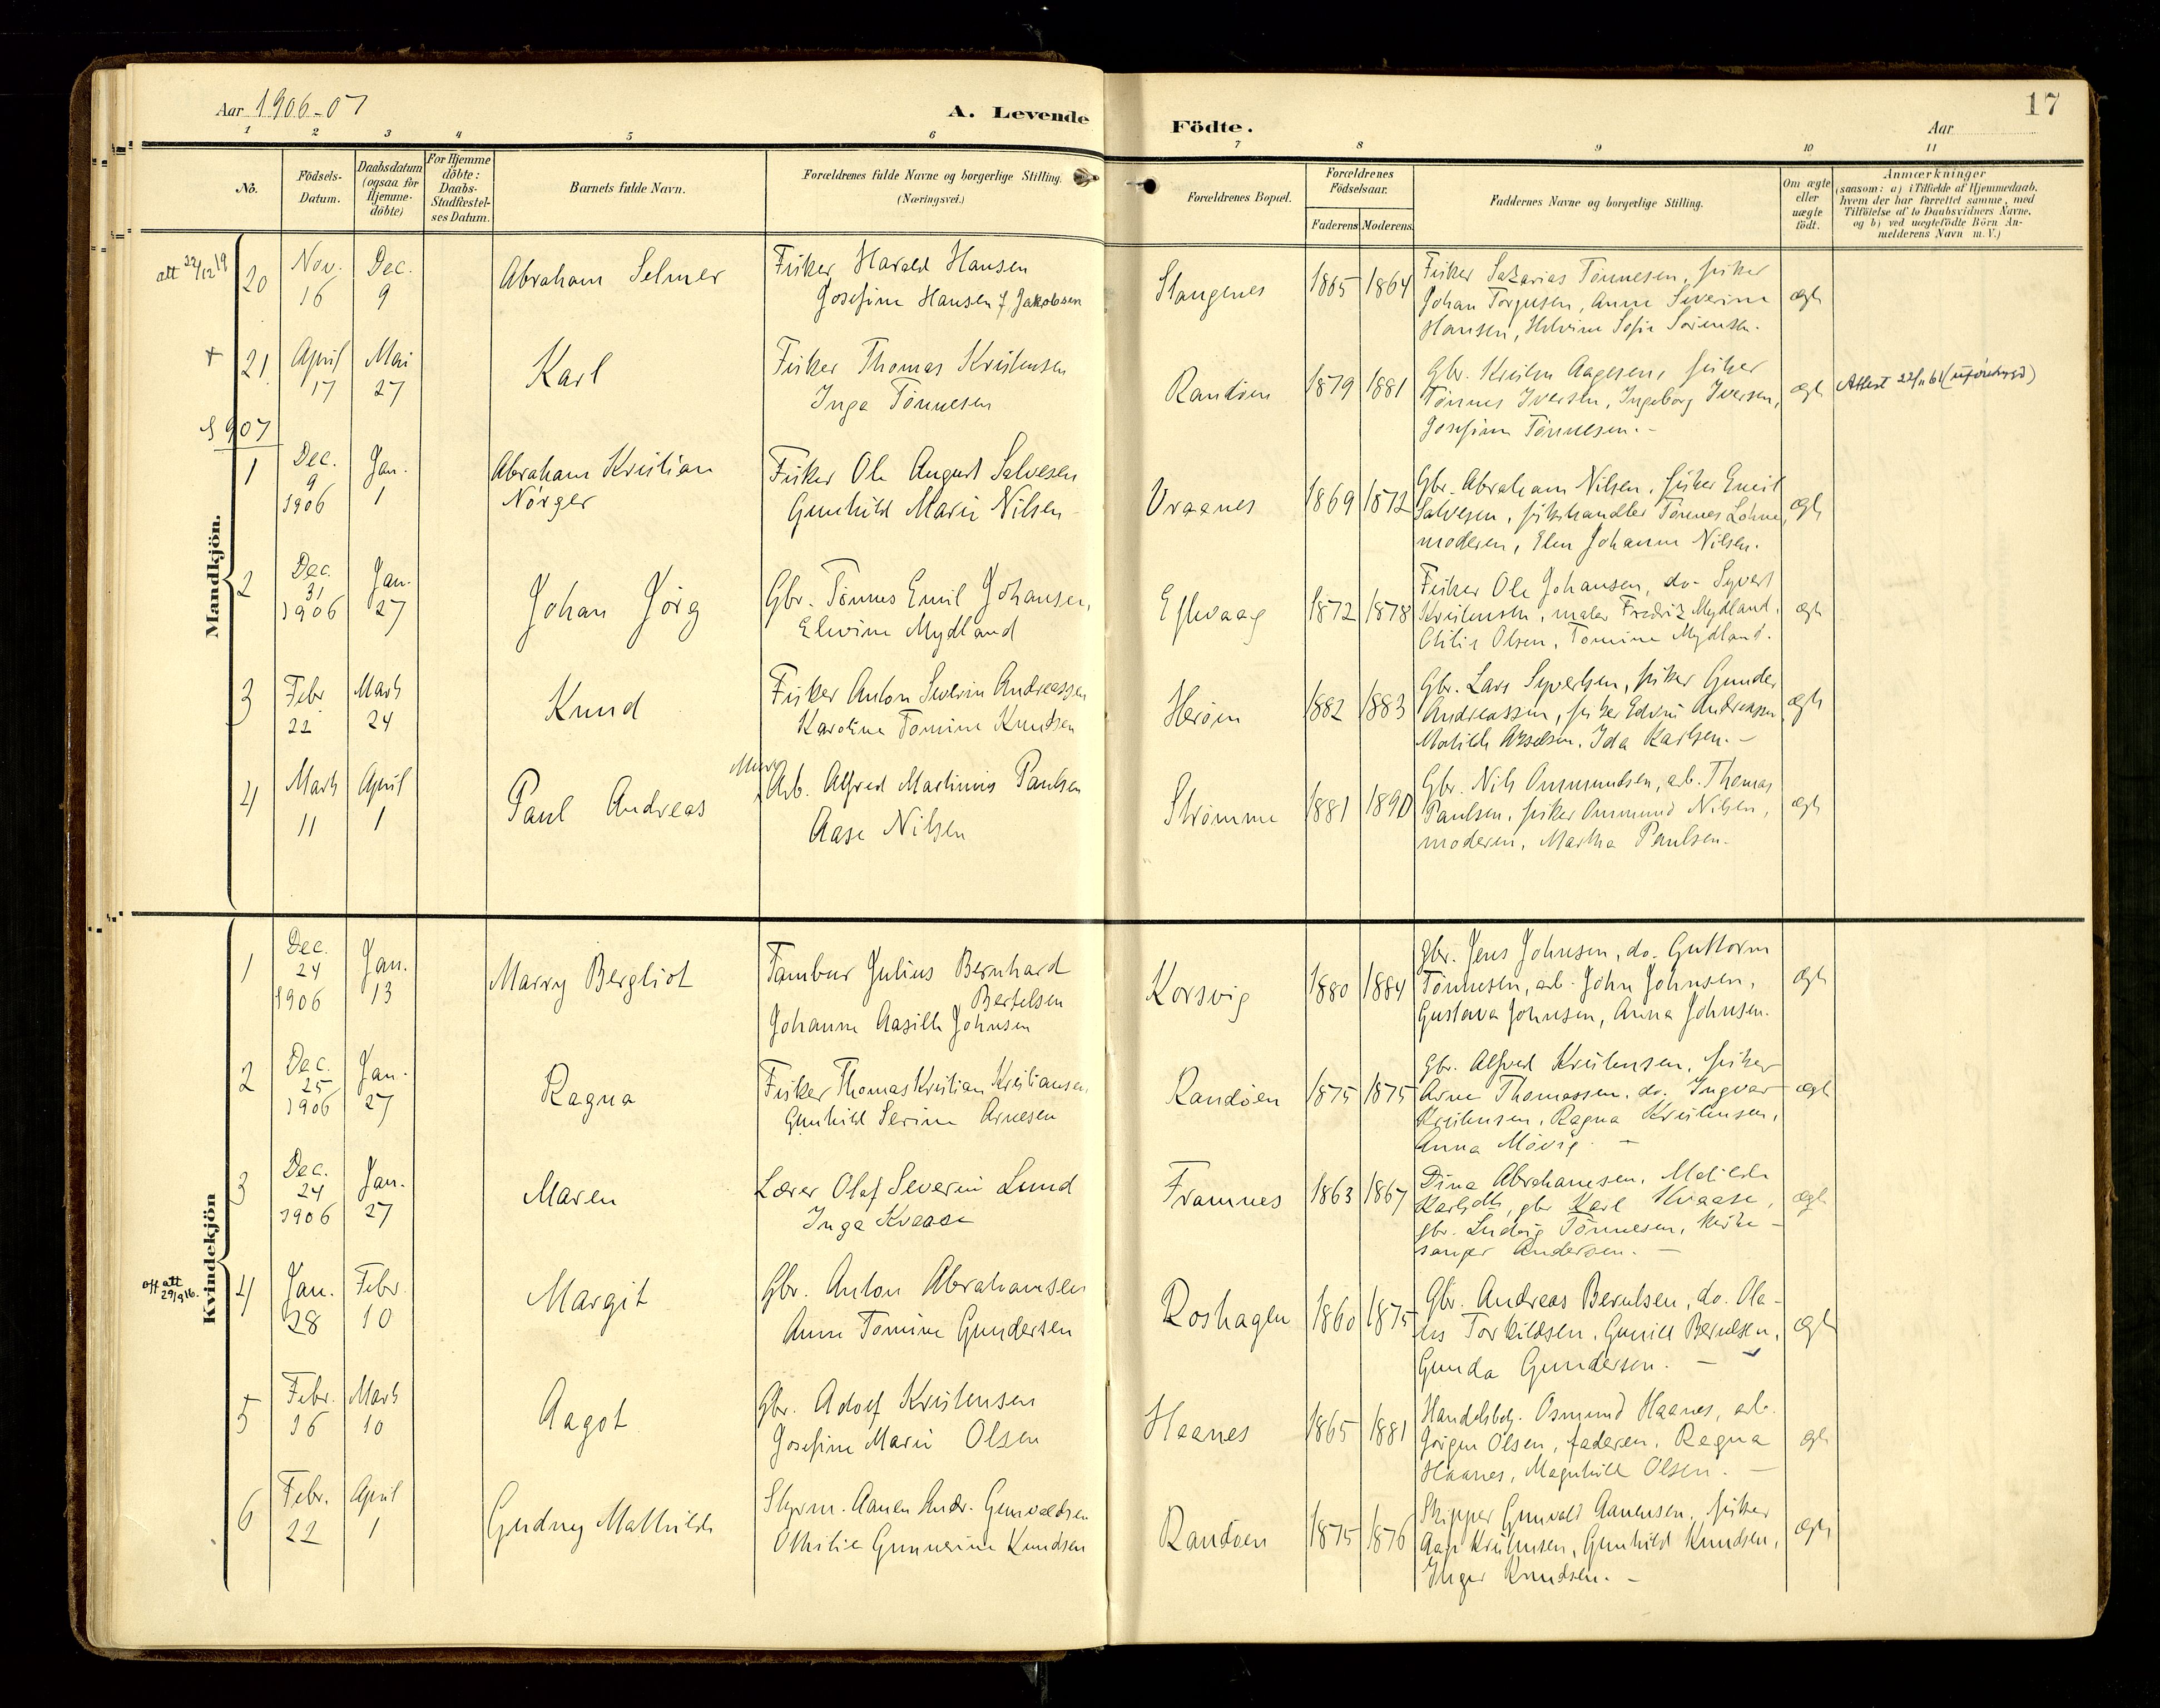 Aar 1906-07
A. Levende
Födte.
Aar
17
1 2 3 4 5 6 7 8 9 10 11
No.
Födsels-Datum.
Daabsdatum (ogsaa for Hjemme-döbte)
For Hjemme döbte: Daabs-Stadfæstel-ses Datum.
Barnets fulde Navn.
Forældrenes fulde Navne og borgerlige Stilling.
(Næringsvei.)
Forældrenes Bopæl.
Forældrenes Födselsaar.
Faderens Moderens
Faddernes Navne og borgerlige Stilling.
Om ægte eller uægte födt.
Anmærkninger
(saasom: a) i Tilfælde af Hjemmedaab,
hvem der har forrettet samme, med
Tilföielse af to Daabsvidners Navne,
og b) ved uægtefödte Börn An-
melderens Navn m.V.)
Mandkjön.
att 22/12 19
20 Nov. 16 Dec. 9
Abraham Selmer
Fisker Harald Hansen
Josefine Hansen f. Jakobsen
Slangenes
1865 1864
Fisker Sakarias Tönnesen, fisker
Johan Torgusen, Anne Severine
Hansen, Helvine Sofie Sörensen.
ægte
+ 21 April 17 Mai 27
Karl
Fisker Thomas Kristensen
Inga Tönnesen
Randöen
1879 1881
Gbr. Kristen Aagesen, fisker
Tönnes Iversen, Ingeborg Iversen,
Josefine Tönnesen. -
ægte
Attest 22/11 61 (uföretrygd)
1907
1 Dec. 9 1906 Jan. 1
Abraham Kristian
Nörger
Fisker Ole August Salvesen
Gunhild Marie Nilsen
Vraanes
1869 1872
Gbr. Abraham Nilsen, fisker Emil
Salvesen, fiskehandler Tönnes Lohne,
moderen, Elen Johanne Nilsen.
ægte
2 Dec. 31 1906 Jan. 27
Johan Jörg
Gbr. Tönnes Emil Johansen,
Elvine Mydland
Eftevaag
1872 1878
Fisker Ole Johansen, do. Syvert
Kristensen, maler Fredrik Mydland,
Otilie Olsen, Tomine Mydland.
ægte
3 Febr 22 Marts 24
Knud
Fisker Anton Severin Andreassen
Karoline Tomine Knudsen
Heröen
1882 1883
Gbr. Lars Syvertsen, fisker Gunder
Andreassen, fisker Edvin Andreassen
Matilde Akselsen, Ida Karlsen. -
ægte
4 Marts 11 April 1
Paul Andreas
Arb. Alfred Martinius Paulsen
Aase Nilsen
Strömme
1881 1890
Gbr. Nils Ommundsen, arb. Thomas
Paulsen, fisker Ommund Nilsen,
moderen, Martha Paulsen.
ægte
Kvindekjön
1 Dec. 24 1906 Jan. 13
Marry Bergliot
Tambur Julius Bernhard
Bertelsen
Johanne Aasille Johnsen
Korsvig
1880 1884
Gbr. Jens Johnsen, do. Guttorm
Tönnesen, arb. John Johnsen,
Gustava Johnsen, Anna Johnsen.
ægte
2 Dec. 25 1906 Jan. 27
Ragna
Fisker Thomas Kristian Kristiansen
Gunhild Serine Arnesen
Randöen
1875 1875
Gbr. Alfred Kristensen, fisker
Arne Thomassen, do. Ingvar
Kristensen, Ragna Kristensen,
Anna Mövig. -
ægte
3 Dec. 24 1906 Jan. 27
Maren
Lærer Olaf Severin Lund
Inga Kvaase
Framnes
1863 1867
Dina Abrahamsen, Matilde
gbr Karl Kvaase,
gbr. Ludvig Tönnesen, kirke-
sanger Andersen. -
ægte
att 29/9 16.
4 Jan. 28 Febr. 10
Margit
Gbr. Anton Abrahamsen
Anne Tomine Gundersen
Roshagen
1860 1875
Gbr. Andreas Berntsen, do. Ola-
us Torkildsen, Gunild Berntsen,
Gunda Gundersen. -
ægte
5 Febr. 16 Marts 10
Aagot
Gbr. Adolf Kristensen
Josefine Marie Olsen
Haanes
1865 1881
Handelsbetj. Osmund Haanes, arb.
Jörgen Olsen, faderen, Ragna
Haanes, Magnhild Olsen. -
ægte
6 Febr. 22 April 1
Gudny Mathilde
Styrm. Aanen Andr. Gunvaldsen
Othilie Gunnerine Knudsen
Randöen
1875 1876
Skipper Gunvald Aanensen, fisker
Aage Kristensen, Gunhild Knudsen,
Inger Knudsen. -
ægte